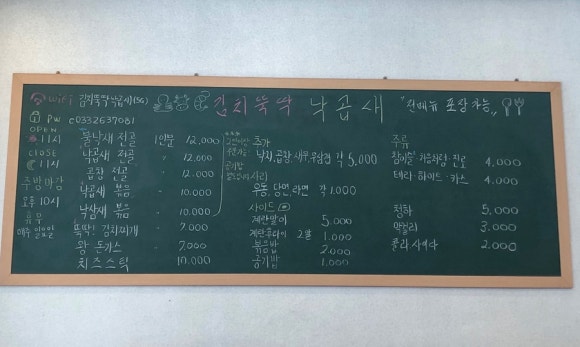 wifi 김치뚝딱낙곱새(5G)
PW c0332637081
김치뚝딱 낙곱새
"전메뉴 포장가능"
OPEN
11시
CLOSE
11시
주방마감
오후10시
휴무
매주 일요일
불낙새 전골 1인분 12,000
낙곱새 전골 〃 12,000
곱창 전골 〃 12,000
낙곱새 볶음 〃 10,000
낙삼새 볶음 〃 10,000
뚝딱! 김치찌개 〃 7,000
왕 돈까스 〃 7,000
치즈스틱 10,000
추가
낙지, 곱창, 새우, 우삼겹 각 5,000
사리
우동, 당면, 라면 각 1,000
사이드
계란말이 5,000
계란후라이 2알 1,000
볶음밥 2,000
공기밥 1,000
주류
참이슬·처음처럼·진로 4,000
테라·하이트·카스 4,000
청하 5,000
막걸리 3,000
콜라·사이다 2,000